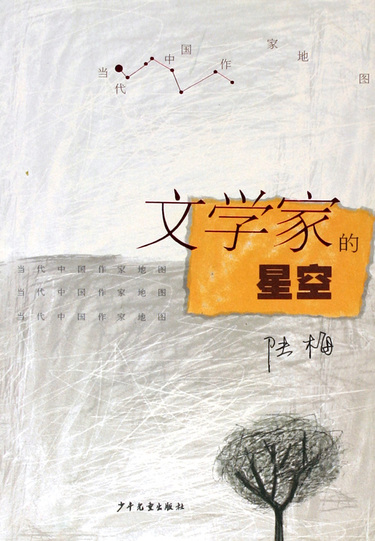 当代中国作家地图
文学家的
星空
当代中国作家地图
当代中国作家地图
当代中国作家地图
陆梅
少年儿童出版社